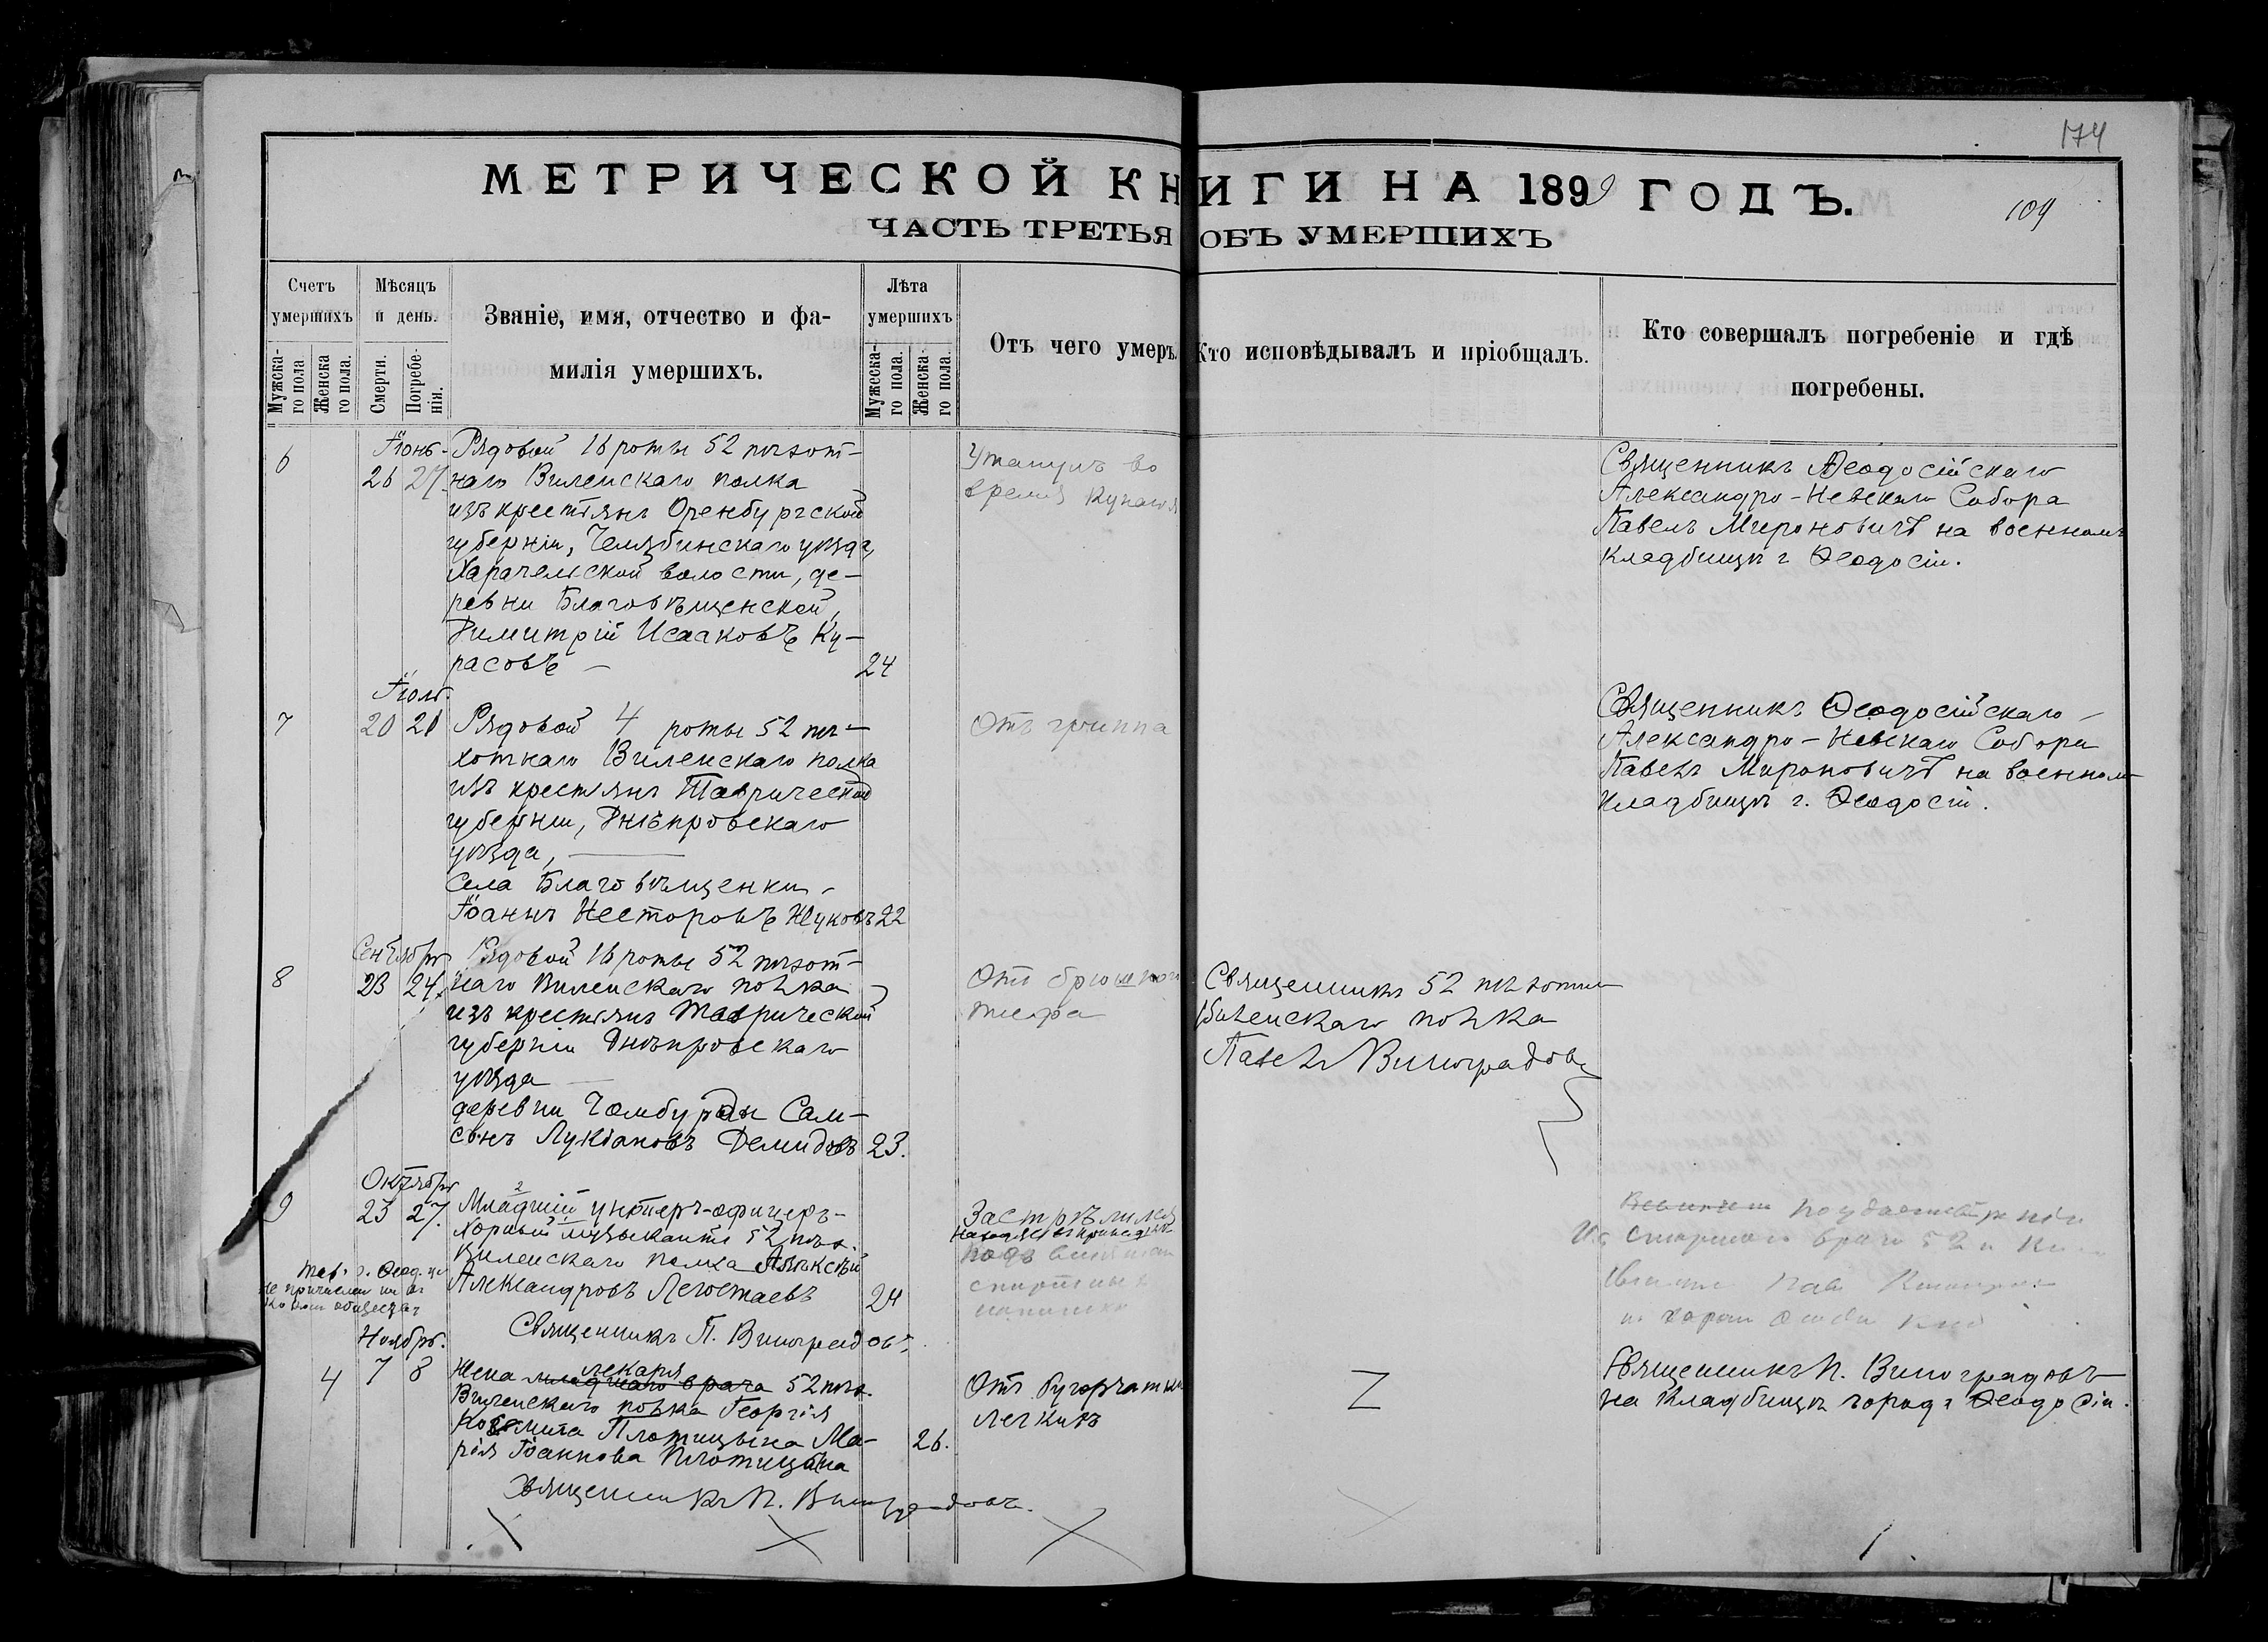 174
МЕТРИЧЕСКОЙ КНИГИ НА 1899 ГОДЪ.
109
ЧАСТЬ ТРЕТЬЯ ОБЪ УМЕРШИХЪ
Счетъ умершихъ
Мужска-го пола
Женска го пола.
Мѣсяцъ и день.
Смерти.
Погребе-нія.
Званіе, имя, отчество и фа-
милія умершихъ.
Лѣта умершихъ
Мужеска-го пола.
Женска-го пола.
Отъ чего умеръ.
Кто исповѣдывалъ и пріобщалъ.
Кто совершалъ погребеніе и гдѣ
погребены.
6
Іюнь
26 27.
Рядовой 16 роты 52 пѣхот-
наго Виленскаго полка
изъ крестьянъ Оренбургской
губерніи, Челябинскаго уѣзда,
Карачельской волости, де-
ревни Благовѣщенской,
Димитрій Исааковъ Ку-
расовъ —
24
Утанулъ во
время
Священникъ Ѳеодосійскаго
Александро-Невскаго Собора
Павелъ Мироновичъ на военномъ
кладбищѣ г. Ѳеодосіи.
7
Іюль.
20 21
Рядовой 4 роты 52 пѣ-
хотнаго Виленскаго полка
изъ крестьянъ Таврической
губерніи, Днѣпровскаго
уѣзда,
села Благовѣщенки
Іоаннъ Несторовъ Жуковъ
22
Отъ гриппа
Священникъ Ѳеодосійскаго
Александро-Невскаго Собора
Павелъ Мироновичъ на военномъ
кладбищѣ г. Ѳеодосіи.
8
Сентябрь
23 24.
Рядовой 16 роты 52 пѣхот-
наго Виленскаго полка
изъ крестьянъ Таврической
губерніи Днѣпровскаго
уѣзда
деревни Чолбурды Сам-
сонъ Лукіановъ Демидовъ
23.
Отъ брюшного
тифа
Священникъ 52 пѣхотн.
Виленскаго полка
Павелъ Виноградовъ
9
Октябрь
23 27.
Младшій унтеръ-офицеръ-
хорный музыкантъ 52 пѣх.
Виленскаго полка Алексѣй
Александровъ Легостаевъ
24
Застрѣлился
Священникъ П. Виноградовъ
4
Ноябрь.
7 8
Жена лекаря
младшаго врача 52 пѣх.
Виленскаго полка Георгія
Козьмича Плотицына Ма-
рія Іоаннова Плотицына
26.
Отъ бугорчатки
легкихъ
Священникъ П. Виноградовъ
на кладбищѣ города Ѳеодосіи.
Священникъ П. Виноградовъ.